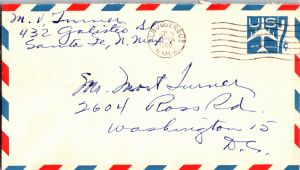 M. V. Turner
432 Galisteo St.
Santa Fe, N. Mex.
ALBUQUERQUE
N. MEX.
US
7¢
Mr. Mort Turner
2604 Ross Rd.
Washington 15
D.C.